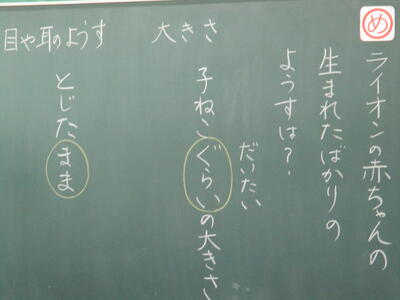 め
ライオンの赤ちゃんの
生まれたばかりの
ようすは?
大きさ
だいたい
子ねこぐらいの大きさ
目や耳のようす
とじたまま